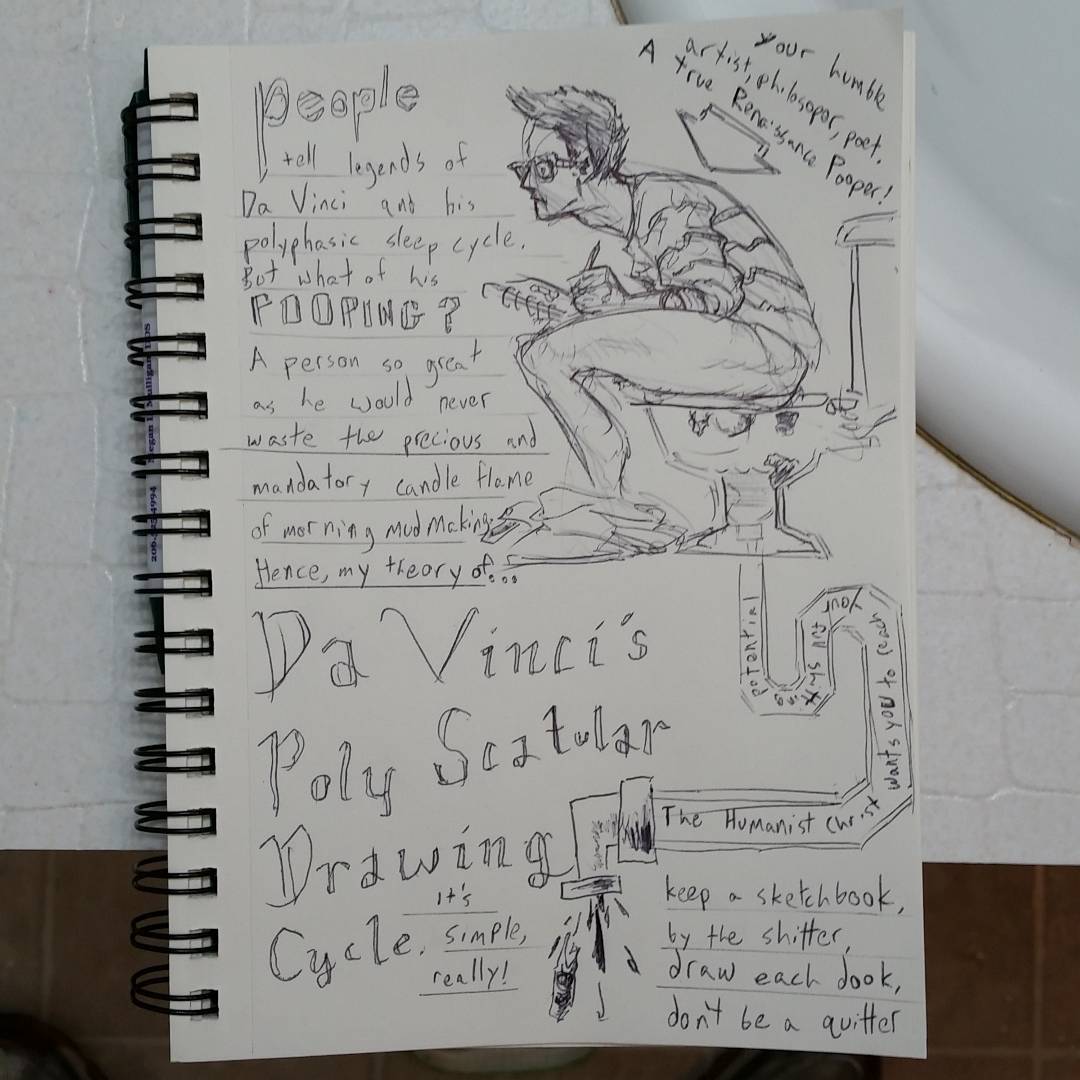 People
tell legends of
Da Vinci and his
polyphasic sleep cycle.
But what of his
POOPING?
A person so great
as he would never
waste the precious and
mandatory candle flame
of morning mud making.
Hence, my theory of...
Da Vinci's
Poly Scatular
Drawing
Cycle.
it's
simple,
really!
Your humble
artist, philosoper, poet.
A true Renaissance Pooper!
The Humanist Christ
wants you to reach
your full shitting
potential
keep a sketchbook,
by the shitter,
draw each dook,
don't be a quitter